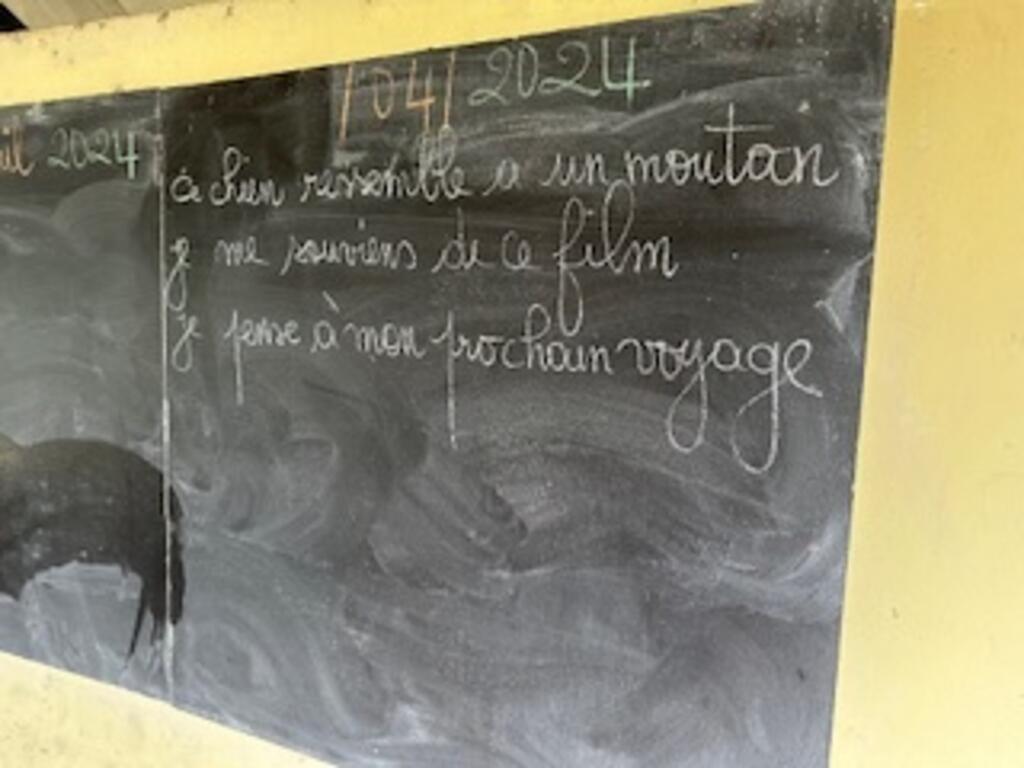 /04/ 2024
il 2024
à chien ressemble a un moutan
je me souviens de ce film
je pense à mon prochain voyage